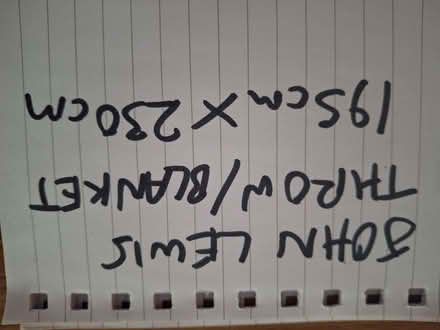 JOHN LEWIS
THROW/BLANKET
195cm X 230cm